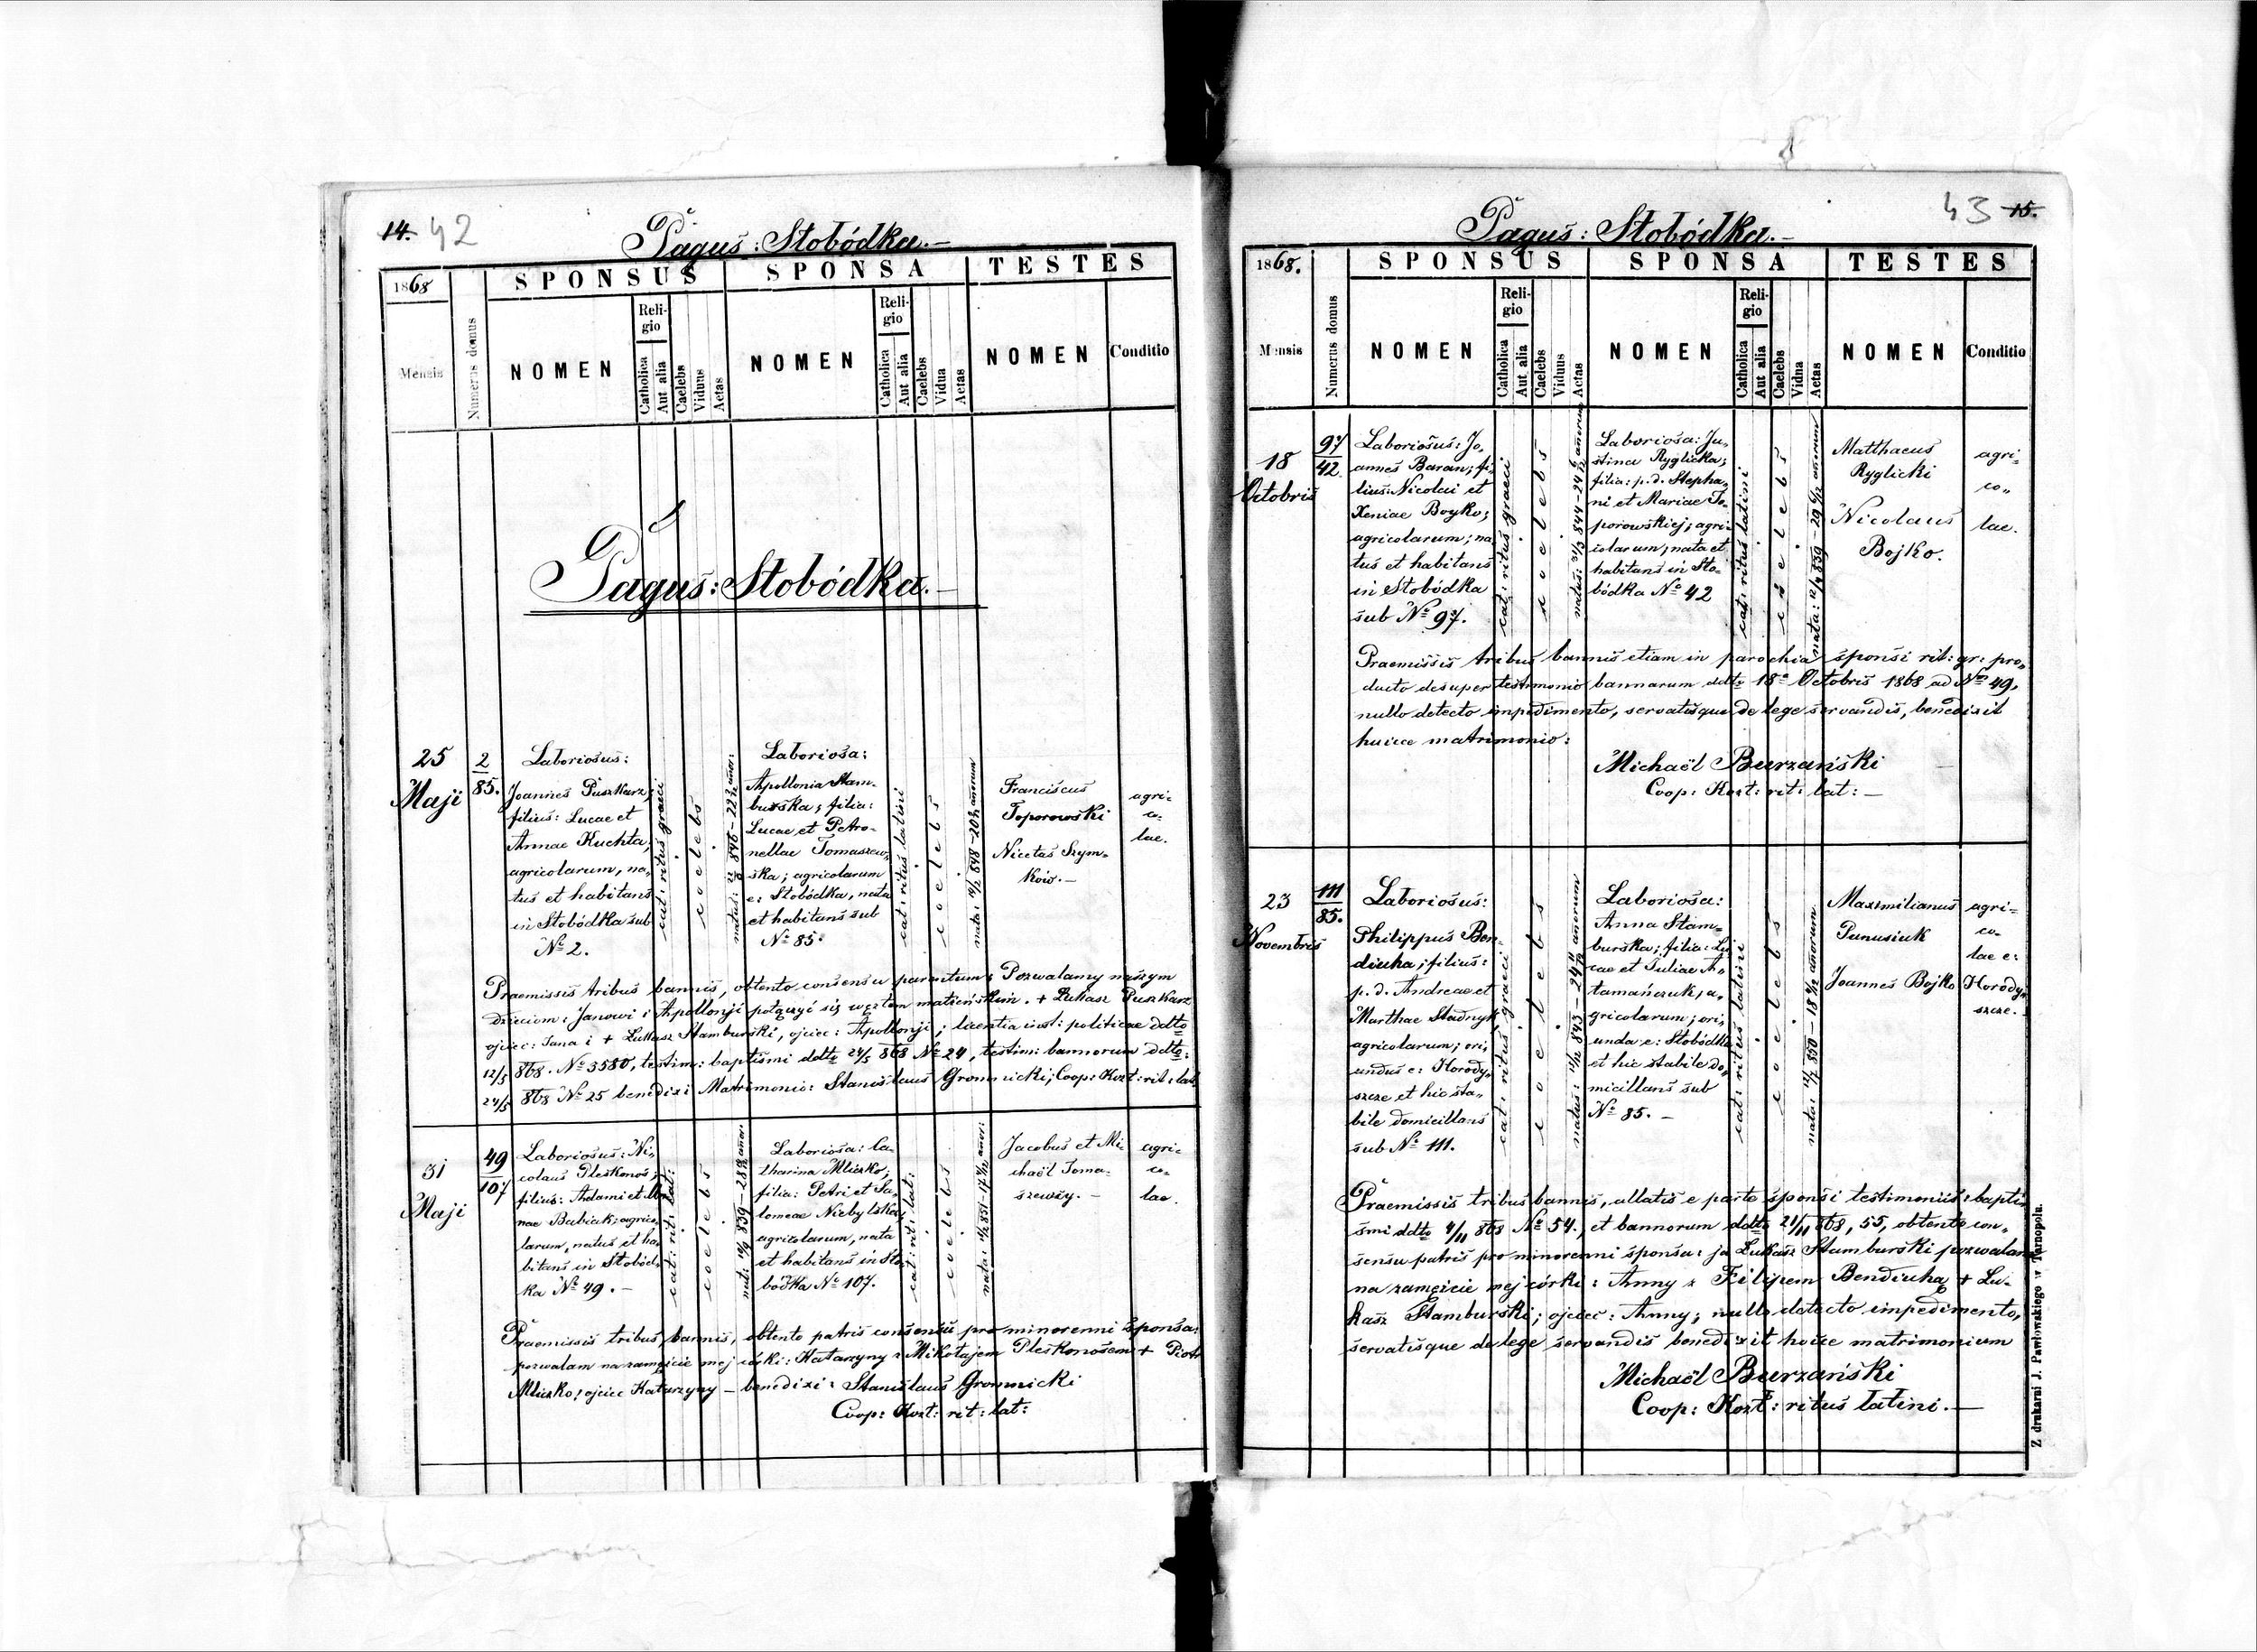 14. 42
Pagus: Słobódka.—
1868
SPONSUS
SPONSA
TESTES
Mensis
Numerus domus
NOMEN
Religio
Catholica
Aut alia
Caelebs
Viduus
Aetas
NOMEN
Religio
Catholica
Aut alia
Caelebs
Vidua
Aetas
NOMEN
Conditio
Pagus: Słobódka.—
25
Maji
2
85.
Laboriosus:
Joannes Puszkarz;
filius: Lucae et
Annae Kuchta;
agricolarum, na-
tus et habitans
in Słobódka sub
No 2.
cat: ritus graeci
coelebs
Laboriosa:
Apollonia Stam-
burska; filia:
Lucae et Petro-
nellae Tomaszew-
ska; agricolarum
e: Słobódka, nata
et habitans sub
No 85.
cat: ritus latini
coelebs
Franciscus
Toporowski
Nicetas Szym-
ków.—
agri-
co-
lae.
Praemissis tribus bannis, obtento consensu parentum: Pozwalamy naszym
dzieciom: Janowi i Apollonji połączyć się węzłem małżeńskim. + Łukasz Puszkarz
ojciec: Jana i + Łukasz Stamburski, ojciec: Apollonji; licentia inst: politicae ddto
12/5 868. No 3580, testim: baptismi ddto 24/5 868 No 24, testim: bannorum ddto:
24/5 868 No 25 benedixi Matrimonio: Stanislaus Gromnicki; Coop: Kozł: rit: lat:
31
Maji
49
107
Laboriosus: Ni-
colaus Pleskonos;
filius: Adami et An-
nae Babiak; agrico-
larum, natus et ha-
bitans in Słobód-
ka No 49.—
cat: rit: lat:
coelebs
Laboriosa: Ca-
tharina Mliczko;
filia: Petri et Sa-
lomeae Niebylska;
agricolarum, nata
et habitans in Sło-
bódka No 107.
cat: rit: lat:
coelebs
Jacobus et Mi-
chaël Toma-
szewscy.—
agri-
co-
lae.
Praemissis tribus bannis, obtento patris consensu pro minorenni sponsa:
pozwalam na zamęście mej córki: Katarzyny z Mikołajem Pleskonosem + Piotr
Mliczko; ojciec Katarzyny — benedixi: Stanislaus Gromnicki
Coop: Kozł: rit: lat:
43 15.
Pagus: Słobódka.—
1868.
SPONSUS
SPONSA
TESTES
Mensis
Numerus domus
NOMEN
Religio
Catholica
Aut alia
Caelebs
Viduus
Aetas
NOMEN
Religio
Catholica
Aut alia
Caelebs
Vidna
Aetas
NOMEN
Conditio
18
Octobris
97
42
Laboriosus: Jo-
annes Baran; fi-
lius: Nicolai et
Xeniae Boyko;
agricolarum; na-
tus et habitans
in Słobódka
sub No 97.
cat: ritus graeci
coelebs
Laboriosa: Ju-
stina Ryglicka;
filia: p. d. Stepha-
ni et Mariae To-
porowskiej; agri-
colarum; nata et
habitans in Sło-
bódka No 42
cat: ritus latini
coelebs
Matthaeus
Ryglicki
Nicolaus
Bojko.
agri-
co-
lae.
Praemissis tribus bannis etiam in parochia sponsi rit: gr: pro-
ducto desuper testimonio bannorum ddto 18a Octobris 1868 ad Nm 49,
nullo detecto impedimento, servatisque de lege servandis, benedixit
huicce matrimonio:
Michaël Burzański
Coop: Kozł: rit: lat:—
23
Novembris
111
85.
Laboriosus:
Philippus Ben-
diuha; filius:
p. d. Andreae et
Marthae Stadnyk
agricolarum; ori-
undus e: Horody-
szcze et hic sta-
bile domicilians
sub No 111.
cat: ritus graeci
coelebs
Laboriosa:
Anna Stam-
burska; filia: Lu-
cae et Juliae A-
tamańczuk; a-
gricolarum; ori-
unda e: Słobódka
et hic stabile do-
micilians sub
No 85.—
cat: ritus latini
coelebs
Maximilianus
Punusiuk
Joannes Bojko
agri-
co-
lae e:
Horody-
szcze.
Praemissis tribus bannis, allatis e parte sponsi testimoniis: bapti-
smi ddto 4/11 868 No 54, et bannorum ddto 21/11 868, 55, obtento con-
sensu patris pro minorenni sponsa: ja Łukasz Stamburski pozwalam
na zamęście mej córki: Anny z Filipem Bendiuhą + Łu-
kasz Stamburski; ojciec: Anny; nullo detecto impedimento,
servatisque de lege servandis benedixit hocce matrimonium
Michaël Burzański
Coop: Kozł: ritus latini.—
Z drukarni J. Pawłowskiego w Tarnopolu.